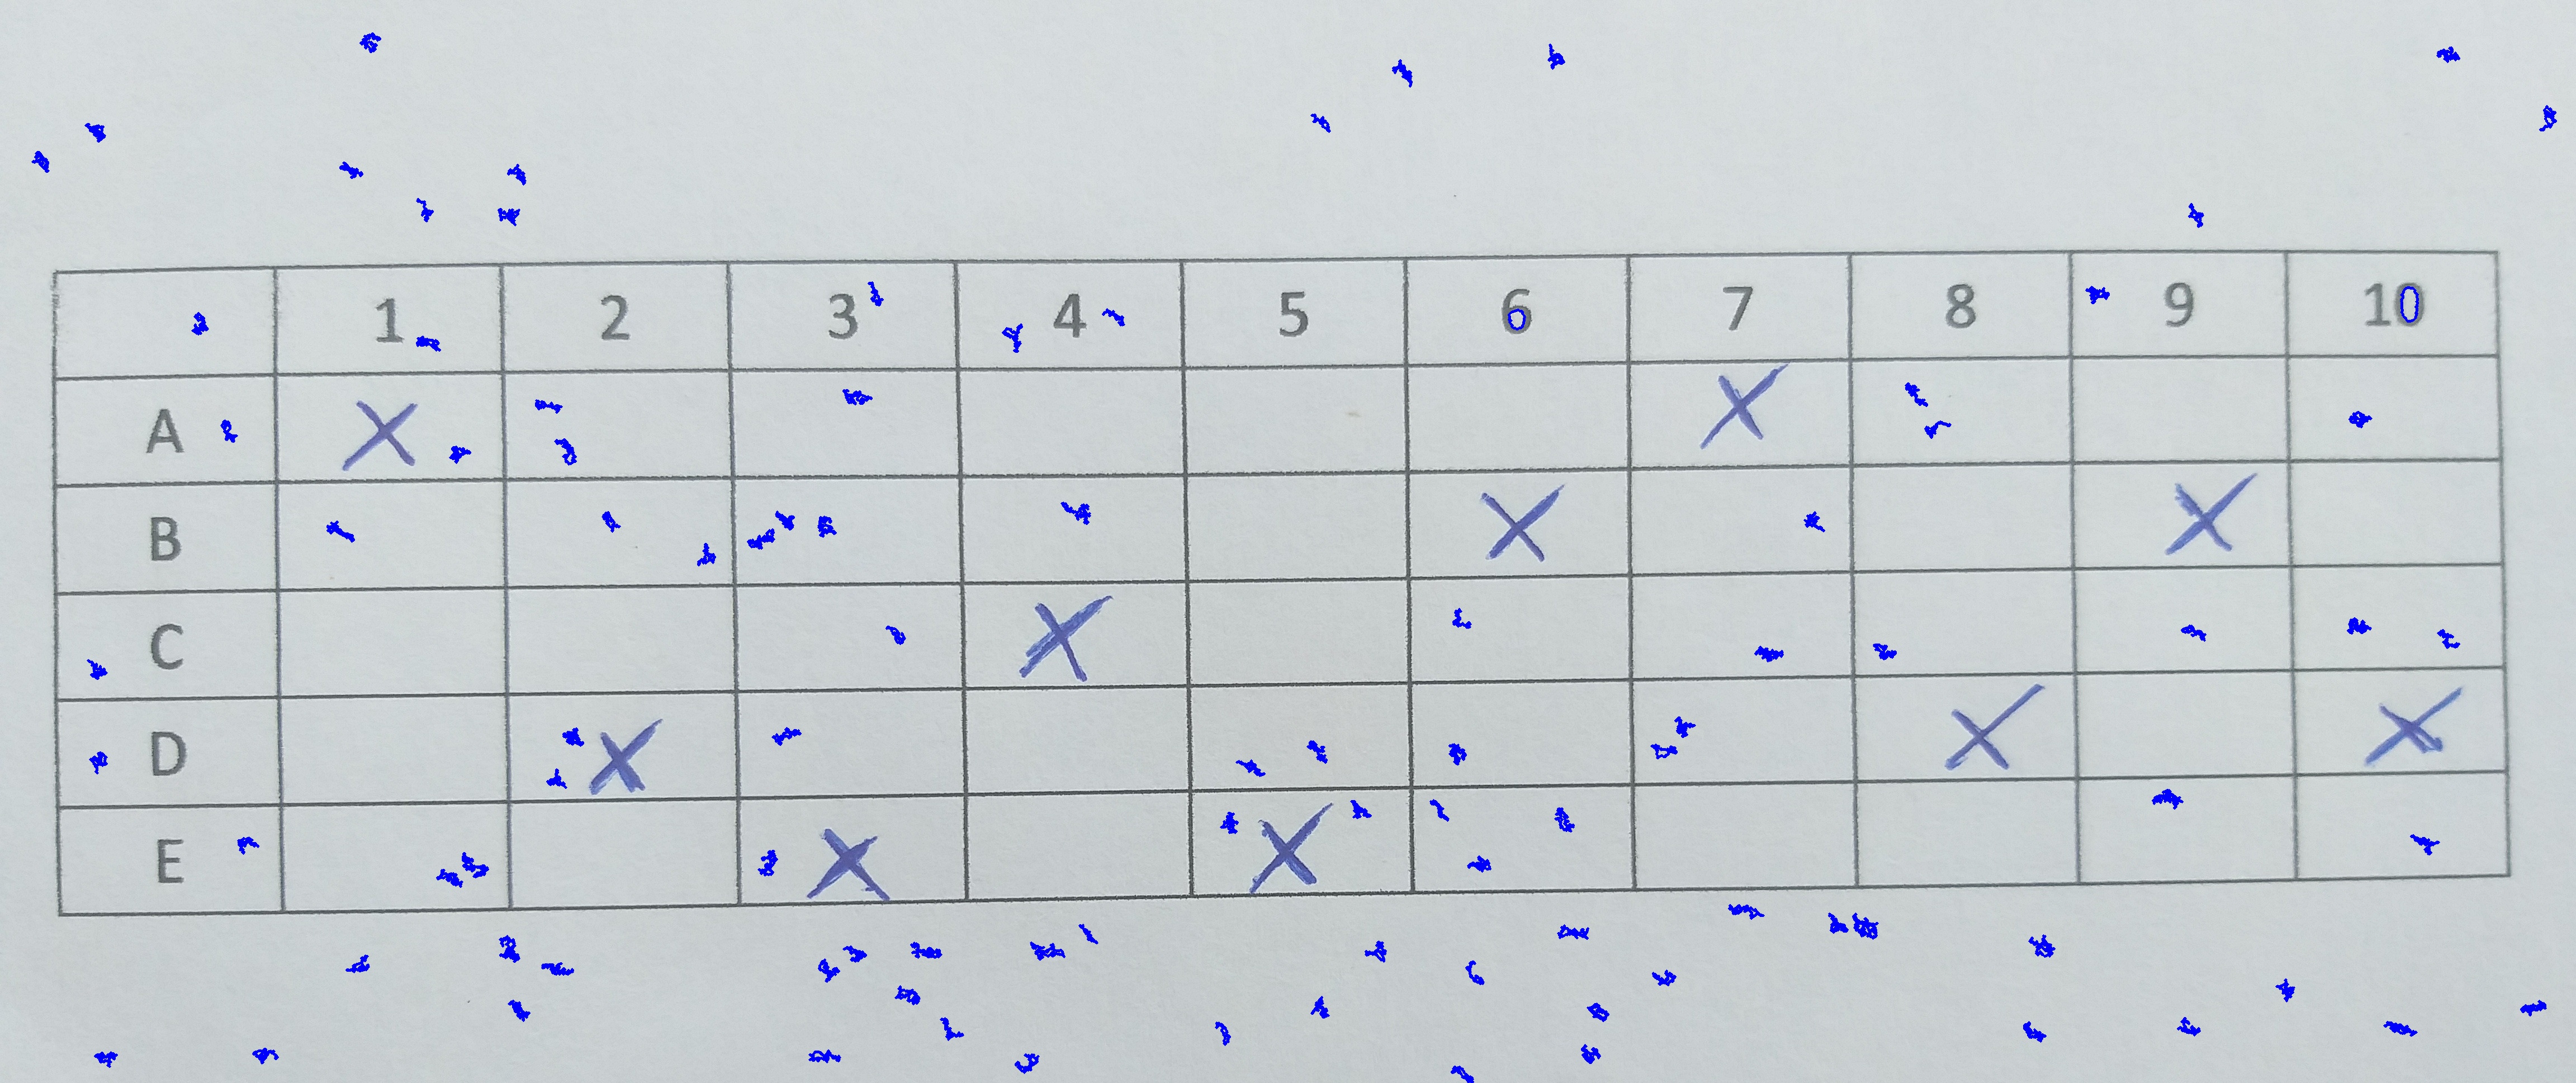 1 2 3 4 5 6 7 8 9 10
A X X
B X X
C X
D X X X
E X X